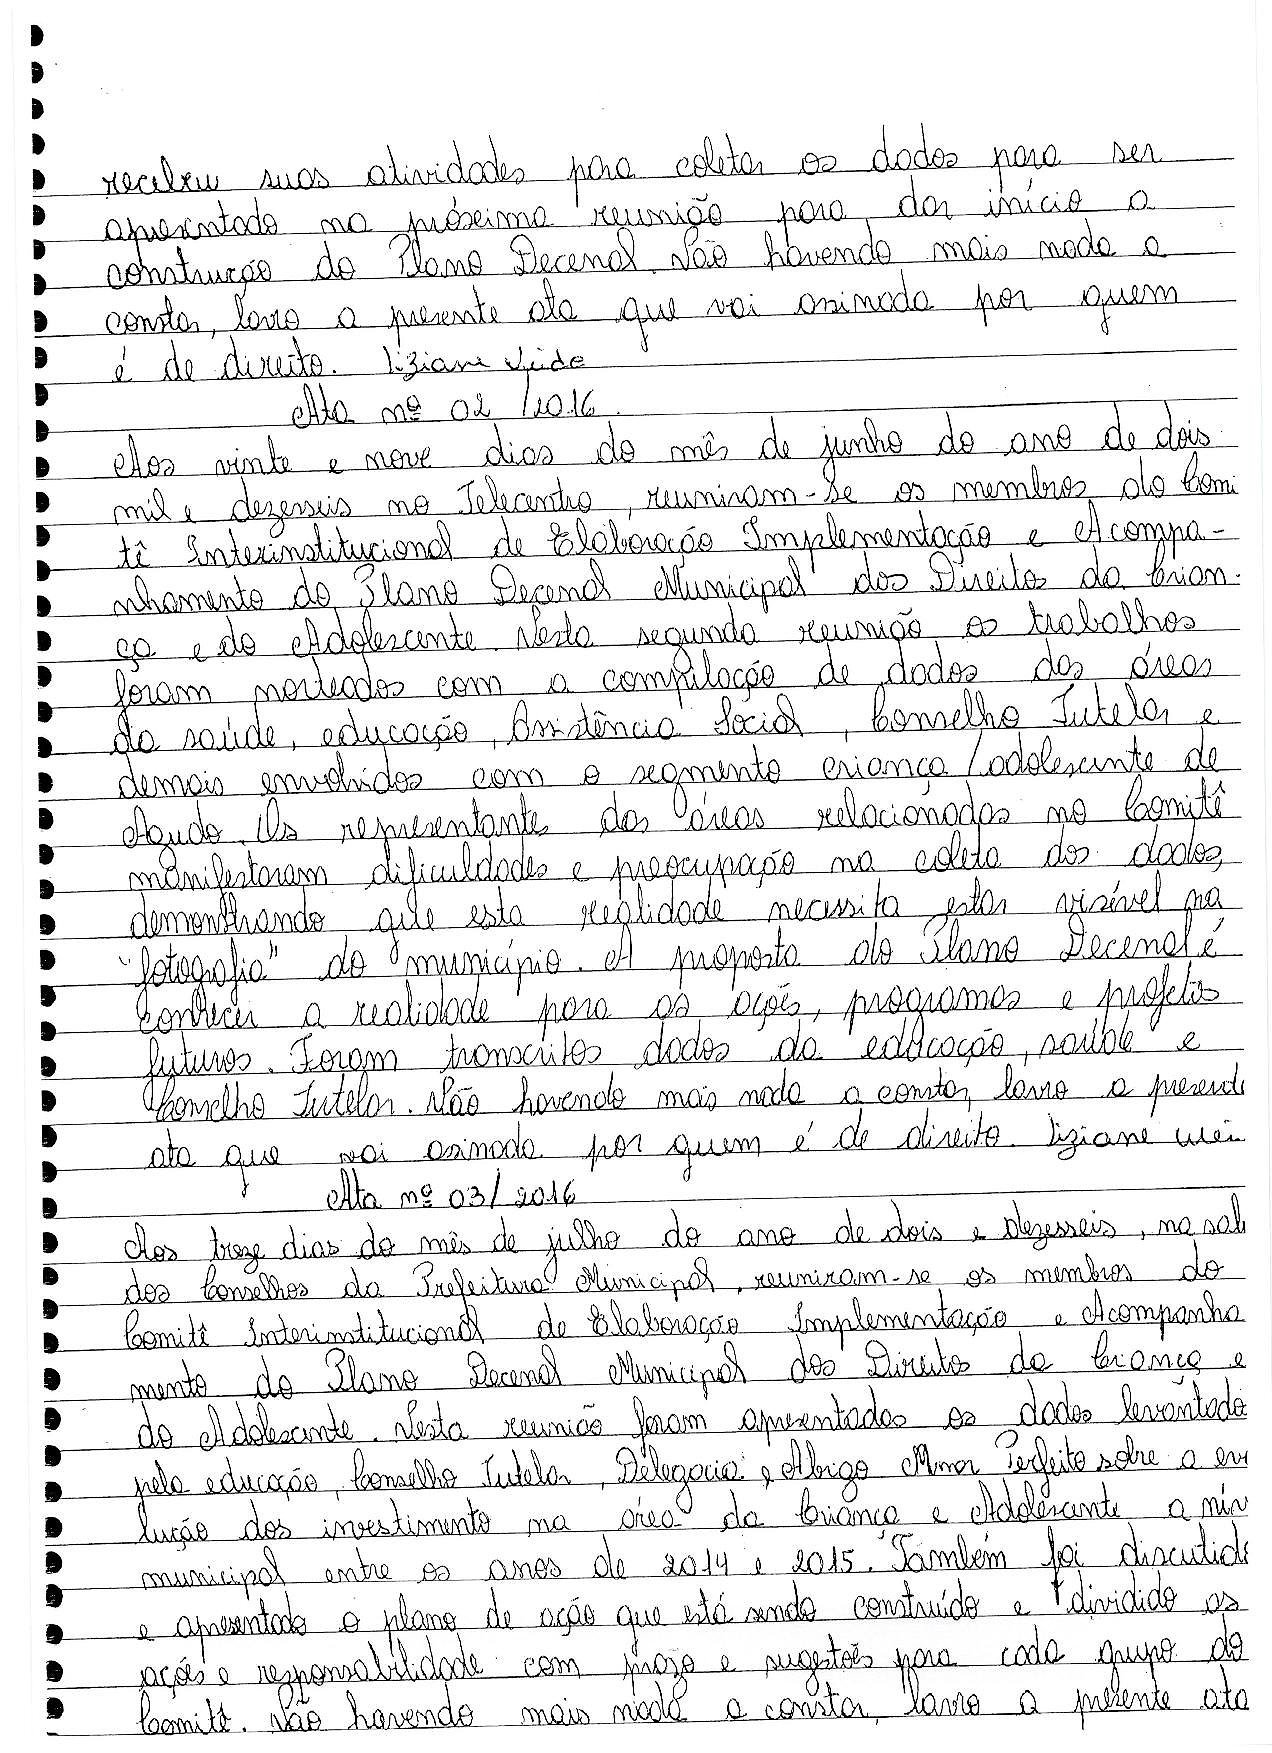 recebeu suas atividades para coletar os dados para ser
apresentado na próxima reunião para dar início a
construção do Plano Decenal. Não havendo mais nada a
constar, lavro a presente ata que vai assinada por quem
é de direito. Liziane
Ata nº 02/2016.
Aos vinte e nove dias do mês de junho do ano de dois
mil e dezesseis no Telecentro, reuniram-se os membros do Comi
tê Interinstitucional de Elaboração Implementação e Acompa-
nhamento do Plano Decenal Municipal dos Direitos da Crian-
ça e do Adolescente. Nesta segunda reunião os trabalhos
foram norteados com a compilação de dados das áreas
da saúde, educação, Assistência Social, Conselho Tutelar e
demais envolvidos com o segmento criança/adolescente de
Agudo. Os representantes das áreas relacionadas no Comitê
manifestaram dificuldades e preocupação na coleta dos dados,
demonstrando que esta realidade necessita estar visível na
"fotografia" do município. A proposta do Plano Decenal é
conhecer a realidade para as ações, programas e projetos
futuros. Foram transcritos dados da educação, saúde e
Conselho Tutelar. Não havendo mais nada a constar, lavro a presente
ata que vai assinada por quem é de direito. Liziane
Ata nº 03/2016
Aos treze dias do mês de julho do ano de dois e dezesseis, na sal
dos Conselhos da Prefeitura Municipal, reuniram-se os membros do
Comitê Interinstitucional de Elaboração Implementação e Acompanha
mento do Plano Decenal Municipal dos Direitos da Criança e
do Adolescente. Nesta reunião foram apresentados os dados levantado
pela educação, Conselho Tutelar, Delegacia e Abrigo Amor Perfeito sobre a evo
lução dos investimento na área da Criança e Adolescente a nív
municipal entre os anos de 2014 e 2015. Também foi discutido
e apresentado o plano de ação que está sendo construído e dividido as
ações e responsabilidade com prazo e sugestões para cada grupo do
Comitê. Não havendo mais nada a constar, lavro a presente ata